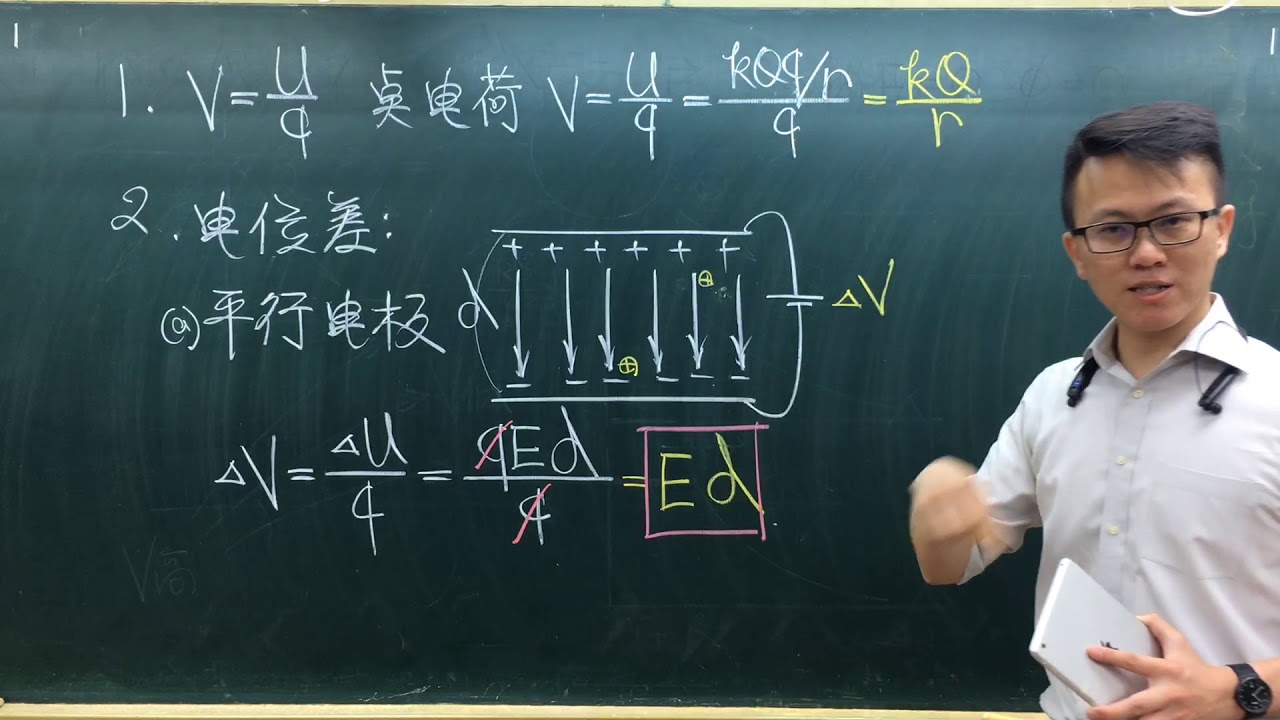 1. V = U/q 点电荷 V = U/q = (kQq/r)/q = kQ/r
2. 电位差:
(a) 平行电板 d
+ + + + + +
⊕
ΔV
⊕
− − − − − −
ΔV = ΔU/q = qEd/q = Ed
V高
1
1